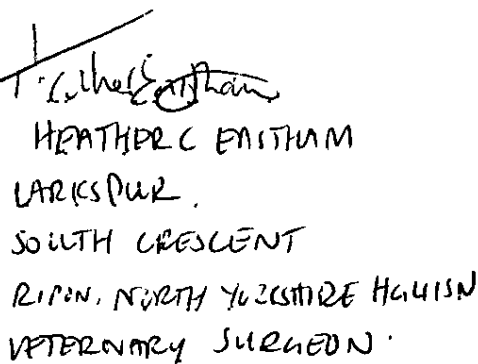 HEATHER C EASTHAM
LARKSPUR.
SOUTH CRESCENT
RIPON, NORTH YORKSHIRE HG41SN
VETERNARY SURGEON.